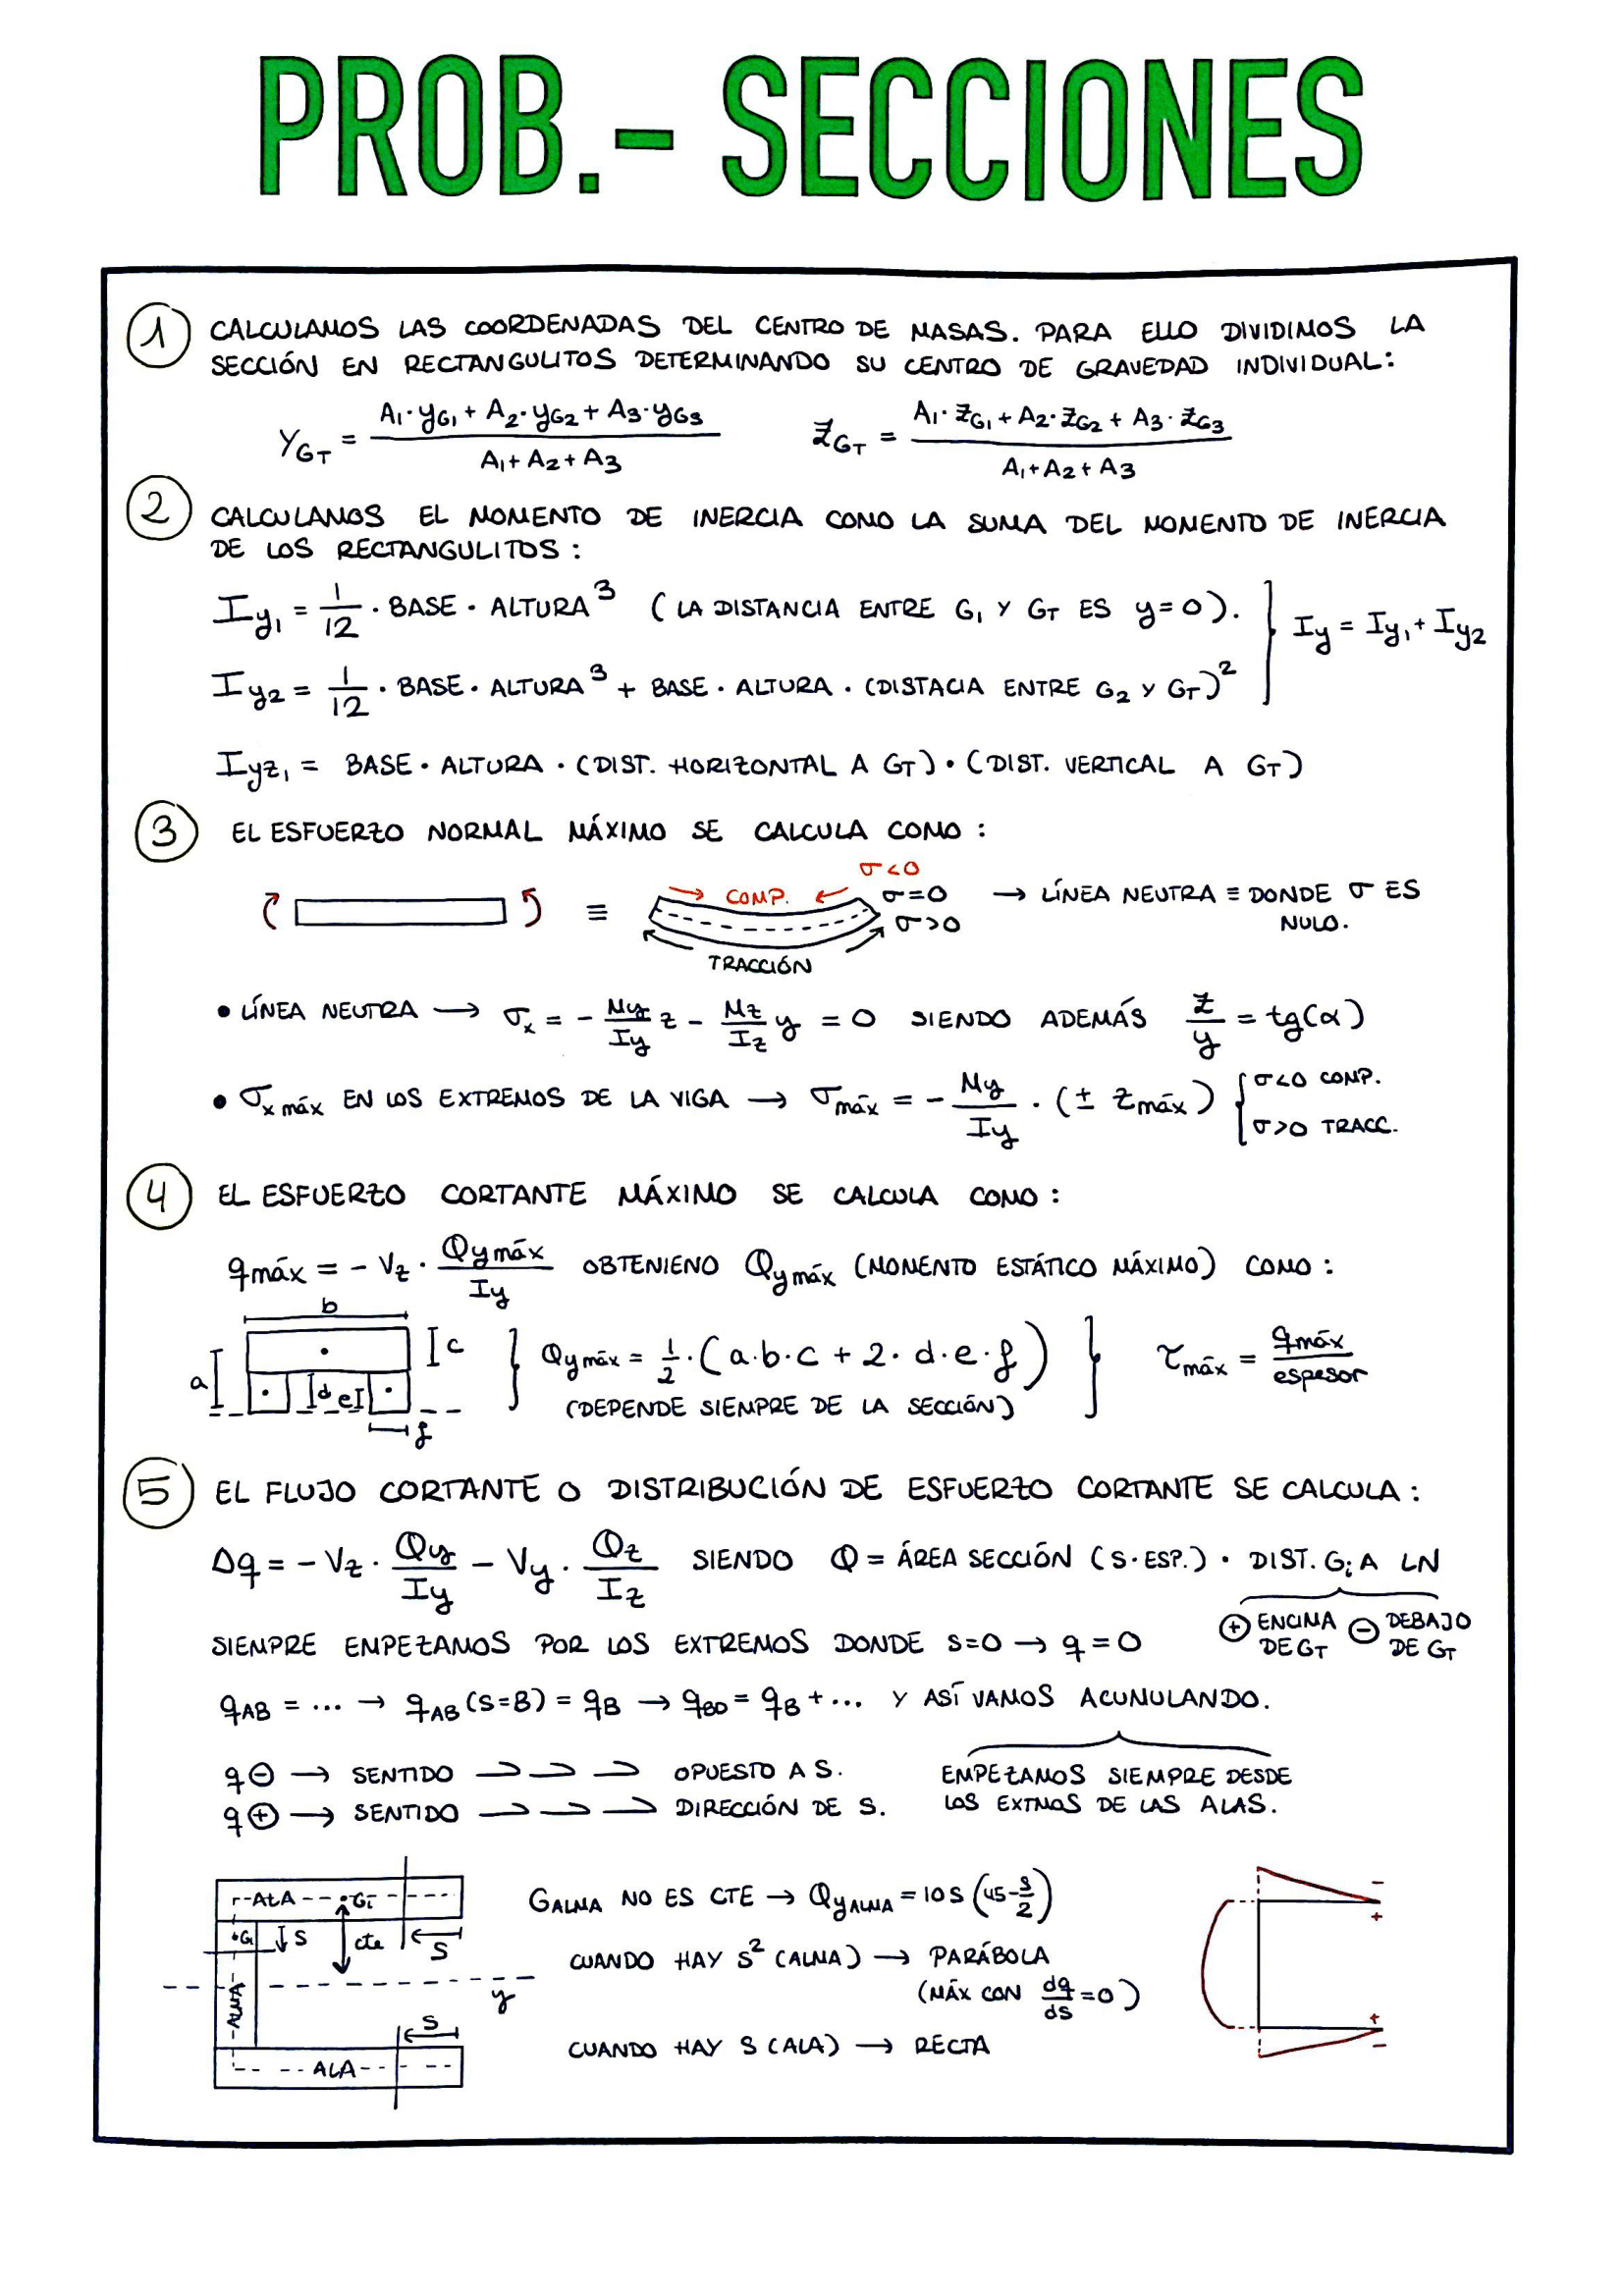 PROB.- SECCIONES
1 CALCULAMOS LAS COORDENADAS DEL CENTRO DE MASAS. PARA ELLO DIVIDIMOS LA
SECCIÓN EN RECTANGULITOS DETERMINANDO SU CENTRO DE GRAVEDAD INDIVIDUAL:
Y_GT = (A₁·y_G1 + A₂·y_G2 + A₃·y_G3) / (A₁ + A₂ + A₃)   Z_GT = (A₁·Z_G1 + A₂·Z_G2 + A₃·Z_G3) / (A₁ + A₂ + A₃)
2 CALCULAMOS EL MOMENTO DE INERCIA COMO LA SUMA DEL MOMENTO DE INERCIA
DE LOS RECTANGULITOS:
I_y1 = 1/12 · BASE · ALTURA³ (LA DISTANCIA ENTRE G₁ Y G_T ES y=0). } I_y = I_y1 + I_y2
I_y2 = 1/12 · BASE · ALTURA³ + BASE · ALTURA · (DISTACIA ENTRE G₂ Y G_T)²
I_yz1 = BASE · ALTURA · (DIST. HORIZONTAL A G_T) · (DIST. VERTICAL A G_T)
3 EL ESFUERZO NORMAL MÁXIMO SE CALCULA COMO:
σ<0
≡ COMP. σ=0 → LÍNEA NEUTRA ≡ DONDE σ ES
σ>0 NULO.
TRACCIÓN
• LÍNEA NEUTRA → σ_x = - M_y/I_y z - M_z/I_z y = 0 SIENDO ADEMÁS z/y = tg(α)
• σ_x máx EN LOS EXTREMOS DE LA VIGA → σ_máx = - M_y/I_y · (± z_máx) { σ<0 COMP.
σ>0 TRACC.
4 EL ESFUERZO CORTANTE MÁXIMO SE CALCULA COMO:
q_máx = - V_z · Q_y máx / I_y OBTENIENO Q_y máx (MOMENTO ESTÁTICO MÁXIMO) COMO:
b
a c d e f } Q_y máx = 1/2 · (a·b·c + 2·d·e·f) } τ_máx = q_máx / espesor
(DEPENDE SIEMPRE DE LA SECCIÓN)
5 EL FLUJO CORTANTE O DISTRIBUCIÓN DE ESFUERZO CORTANTE SE CALCULA:
Δq = - V_z · Q_y/I_y - V_y · Q_z/I_z SIENDO Q = ÁREA SECCIÓN (S·ESP.) · DIST. G_i A LN
⊕ ENCINA DE G_T ⊖ DEBAJO DE G_T
SIEMPRE EMPEZAMOS POR LOS EXTREMOS DONDE S=0 → q=0
q_AB = ... → q_AB (S=B) = q_B → q_BD = q_B + ... Y ASÍ VAMOS ACUMULANDO.
q ⊖ → SENTIDO OPUESTO A S. EMPEZAMOS SIEMPRE DESDE
q ⊕ → SENTIDO DIRECCIÓN DE S. LOS EXTMOS DE LAS ALAS.
ALA G_i
G_i S cte S
ALMA
y
S
ALA
G_ALMA NO ES CTE → Q_y ALMA = 10S (45 - S/2)
CUANDO HAY S² (ALMA) → PARÁBOLA
(MÁX CON dq/ds = 0)
CUANDO HAY S (ALA) → RECTA
-
+
+
-